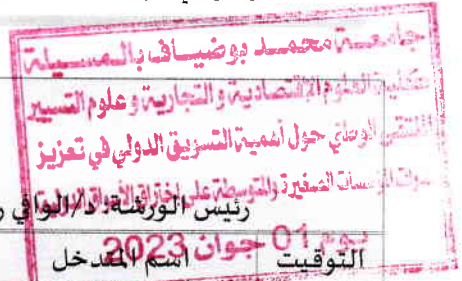 جامعة محمد بوضياف بالمسيلة
كلية العلوم الاقتصادية والتجارية وعلوم التسيير
الملتقى الوطني حول أهمية التسويق الدولي في تعزيز
المؤسسات الصغيرة والمتوسطة على اختراق الأسواق
رئيس الورشة: د/الوافي
يوم 01 جوان 2023
التوقيت اسم المتدخل